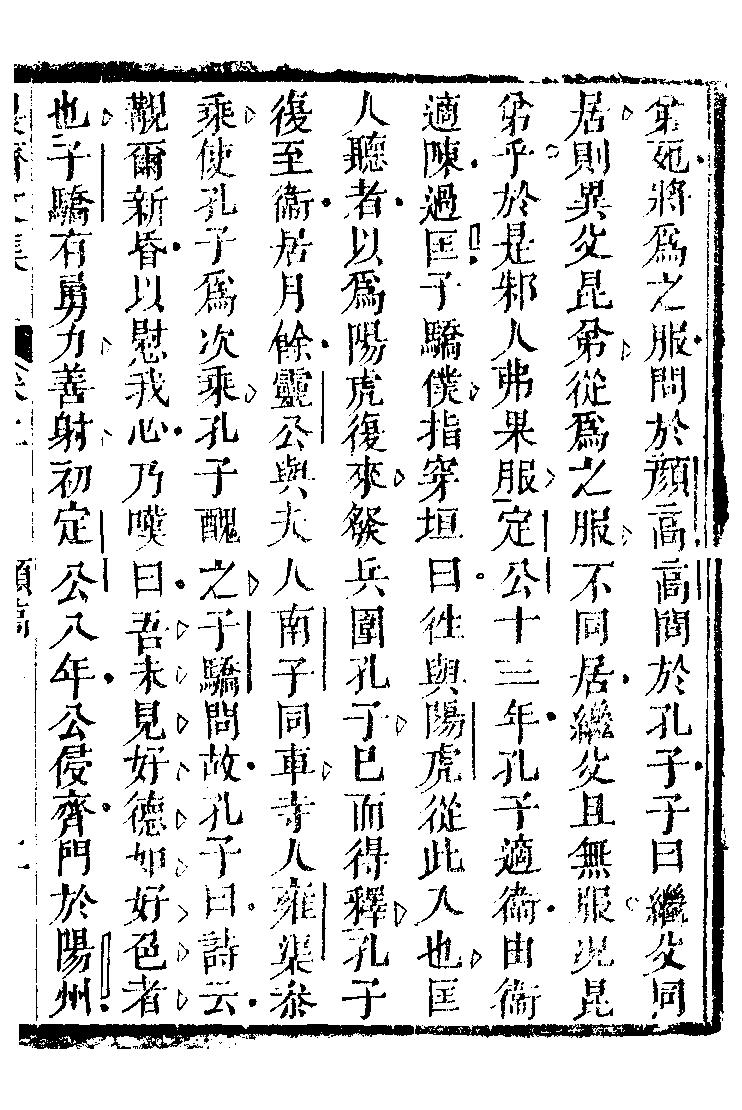 弟死將爲之服問於顔高高問於孔子子曰繼父同
居則異父昆弟從爲之服不同居繼父且無服况昆
弟乎於是邾人弗果服定公十三年孔子適衞由衞
適陳過匡子驕僕指穿垣曰徃與陽虎從此入也匡
人聽者以爲陽虎復來發兵圍孔子已而得釋孔子
復至衞居月餘靈公與夫人南子同車寺人雍渠參
乘使孔子爲次乘孔子醜之子驕問故孔子曰詩云
覯爾新昏以慰我心乃嘆曰吾未見好德如好色者
也子驕有勇力善射初定公八年公侵齊門於陽州
文集 顔高